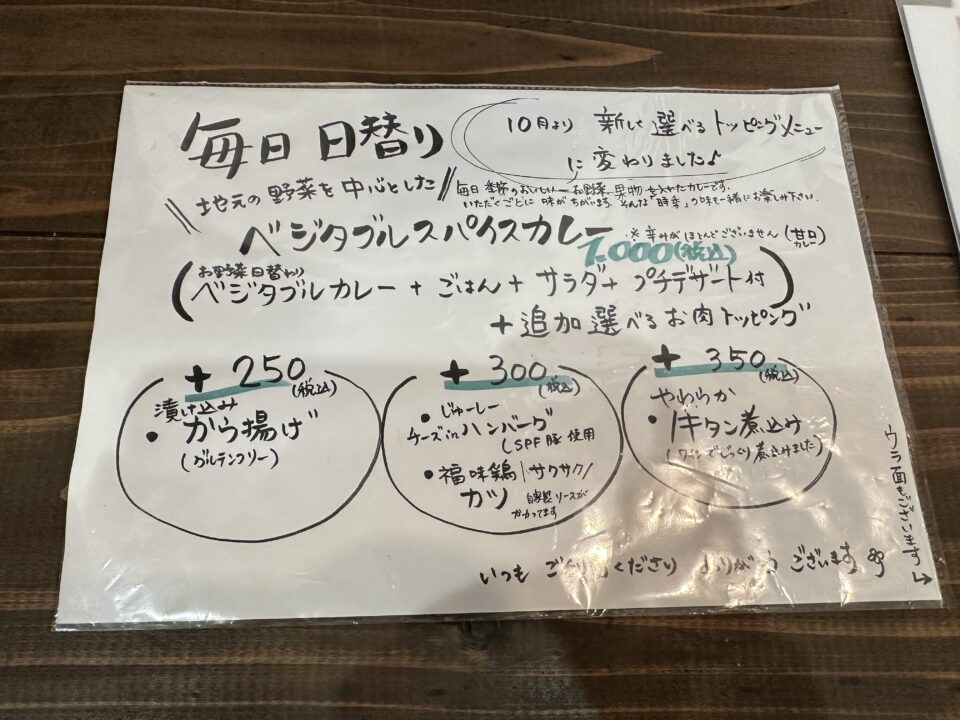 毎日 日替り
10月より 新しく 選べる トッピングメニュー
に 変わりました♪
地元の 野菜を 中心とした
毎日 季節のおいしいーお野菜、果物を入れたカレーです。
いただくごとに 味がちがいます。そんな「時季」の味も一緒にお楽しみ下さい。
ベジタブルスパイスカレー
※辛みがほとんどございません(甘口カレー)
1,000(税込)
お野菜日替わり
(ベジタブルカレー + ごはん + サラダ + プチデザート付)
+ 追加 選べる お肉 トッピング
+ 250(税込)
漬け込み
・から揚げ
(グルテンフリー)
+ 300(税込)
・じゅーしー
チーズinハンバーグ
(SPF豚 使用
・福味鶏 サクサク
カツ 自家製 ソースが
かかってます
+ 350(税込)
やわらか
・キタン煮込み
(ワインでじっくり煮込みました)
ウラ面もございます→
いつも ください ありがとう ございます